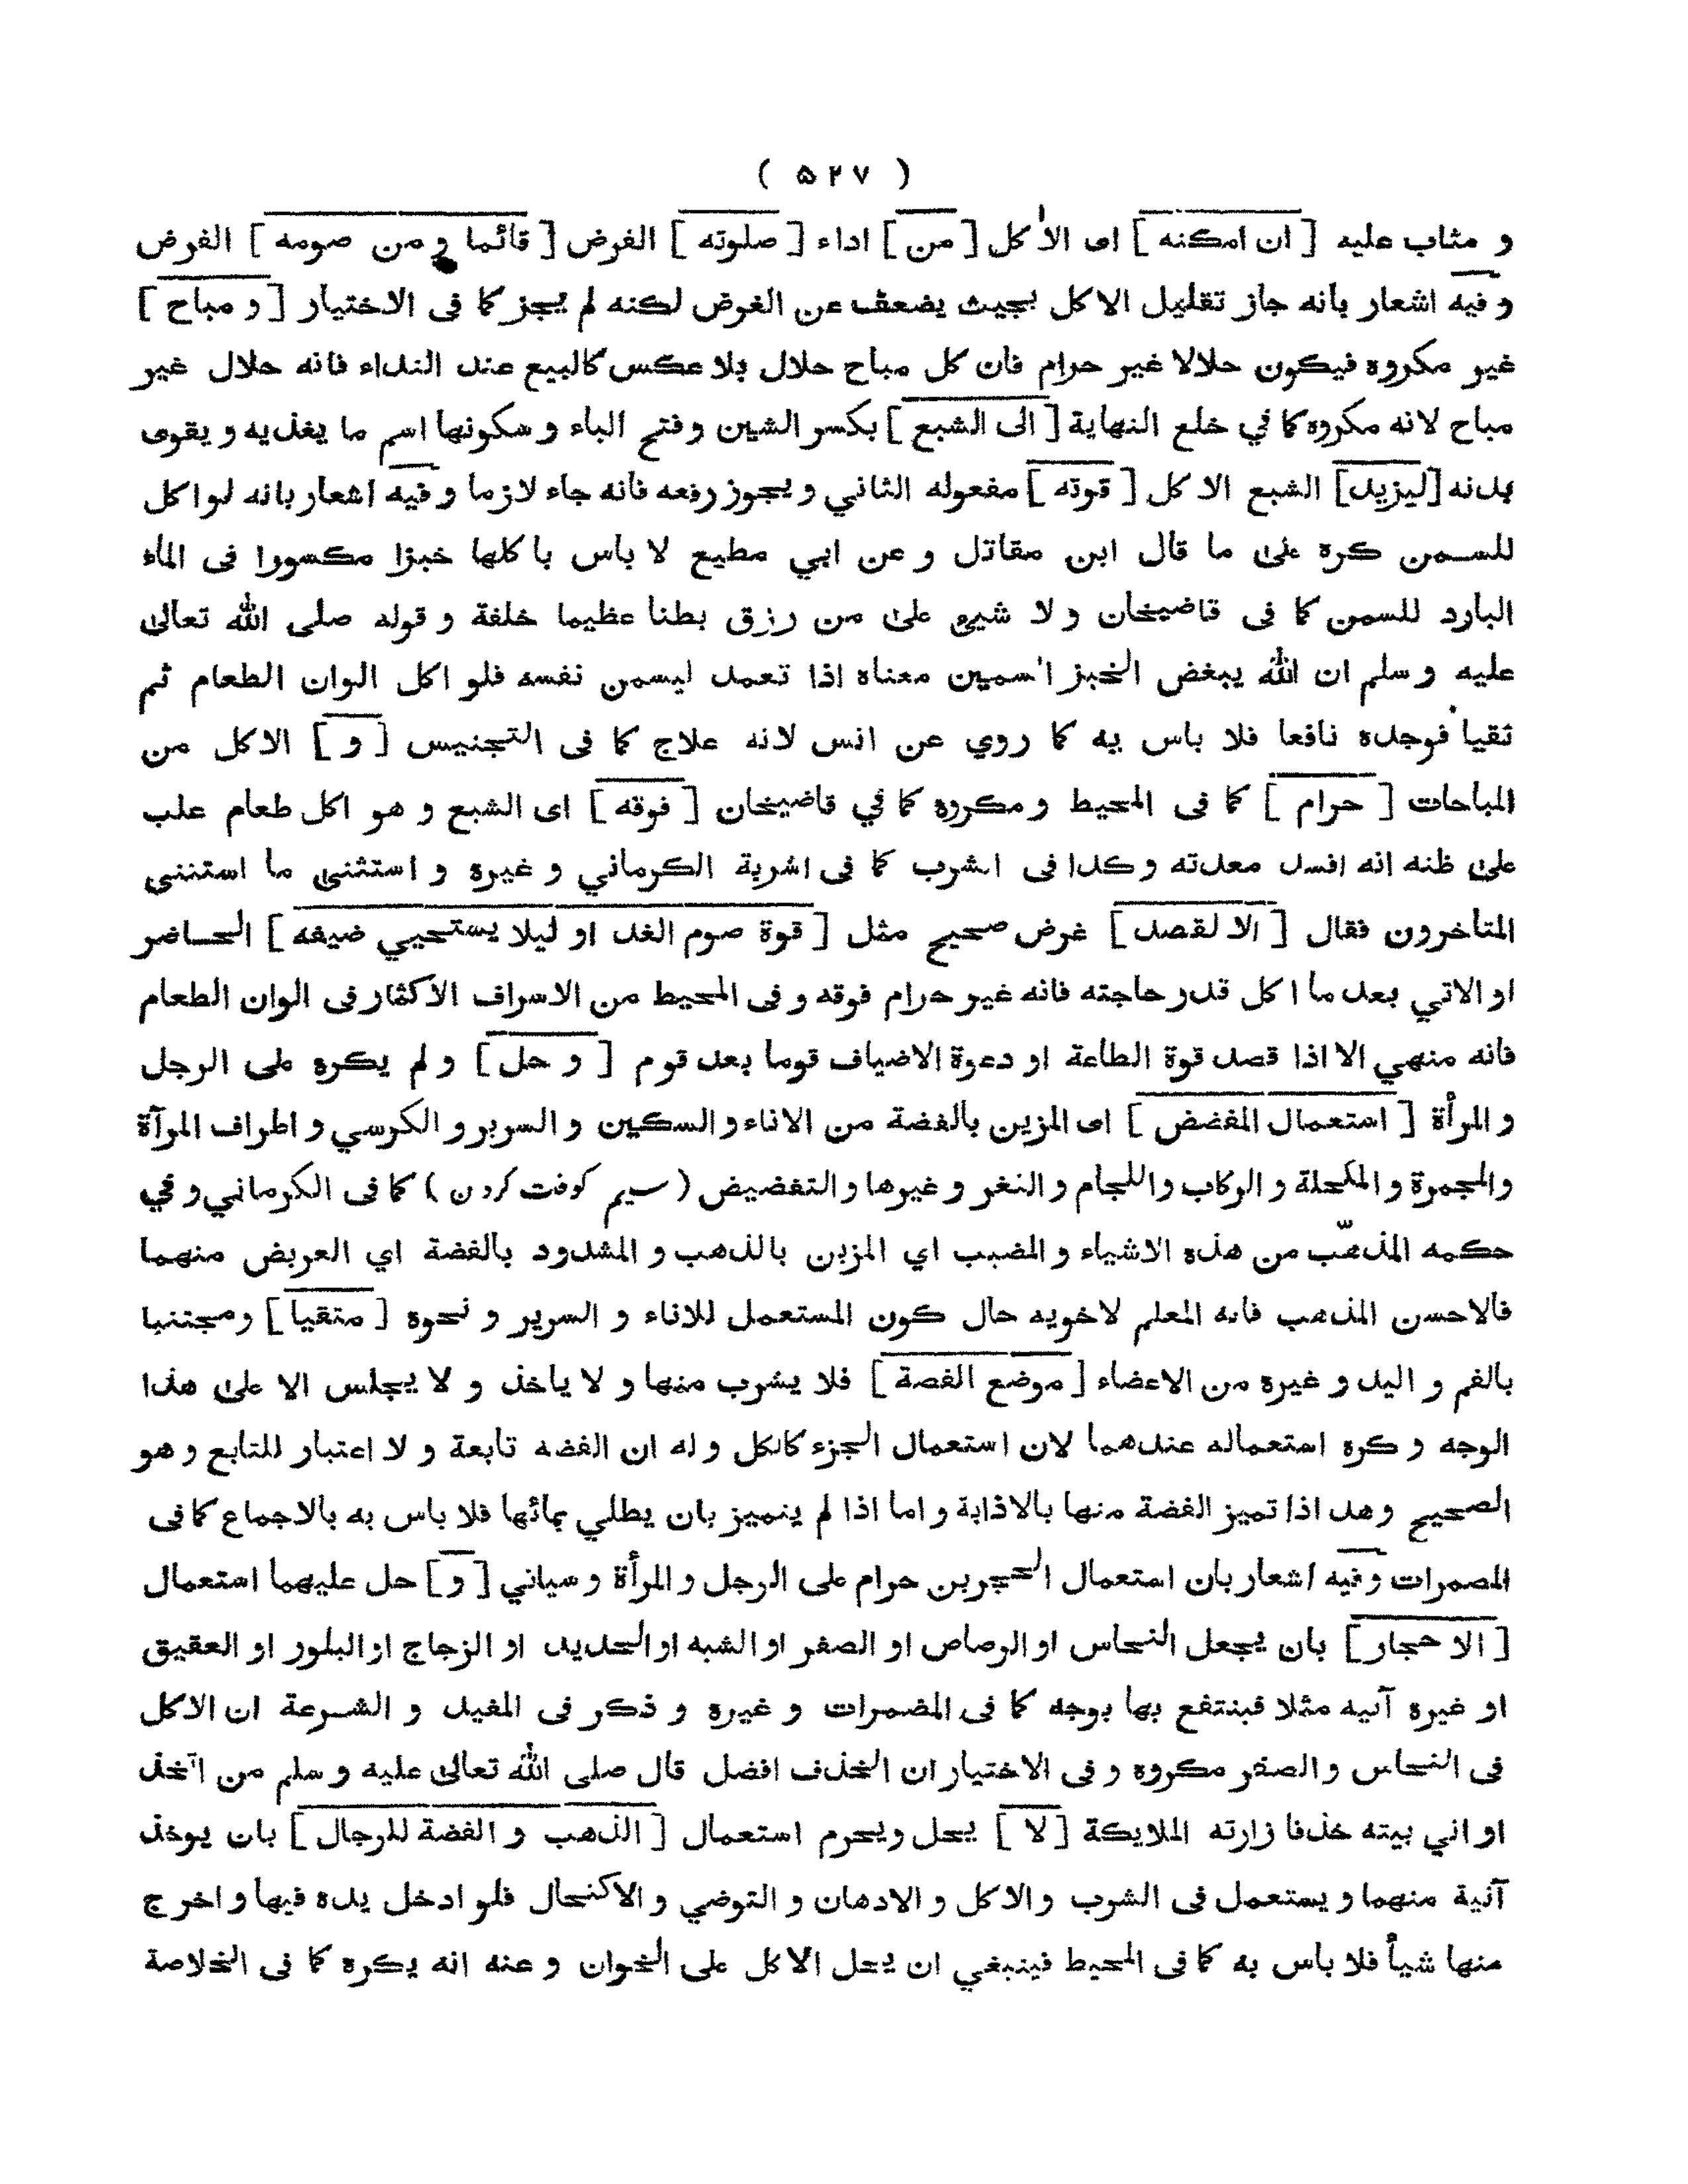 ( ۵۲۷ )
و مثاب عليه [ ان امكنه ] اى الاكل [ من ] اداء [ صلوته ] الفرض [ قائما و من صومه ] الفرض
و فيه اشعار بانه جاز تقليل الاكل بحيث يضعف عن الفرض لكنه لم يجز كما فى الاختيار [ و مباح ]
غير مكروه فيكون حلالا غير حرام فان كل مباح حلال بلا عكس كالبيع عند النداء فانه حلال غير
مباح لانه مكروه كما في خلع النهاية [ الى الشبع ] بكسر الشين و فتح الباء و سكونها اسم ما يغذيه و يقوى
بدنه [ ليزيد ] الشبع الاكل [ قوته ] مفعوله الثاني و يجوز رفعه فانه جاء لازما و فيه اشعار بانه لو اكل
للسمن كره على ما قال ابن مقاتل و عن ابي مطيع لا باس باكلها خبزا مكسورا فى الماء
البارد للسمن كما فى قاضيخان و لا شيئ على من رزق بطنا عظيما خلقة و قوله صلى الله تعالى
عليه و سلم ان الله يبغض الخبز السمين معناه اذا تعمد ليسمن نفسه فلو اكل الوان الطعام ثم
تقيأ فوجده نافعا فلا باس به كما روي عن انس لانه علاج كما فى التجنيس [ و ] الاكل من
المباحات [ حرام ] كما فى المحيط و مكروه كما في قاضيخان [ فوقه ] اى الشبع و هو اكل طعام غلب
على ظنه انه افسد معدته و كذا فى الشرب كما فى اشربة الكرماني و غيره و استثنى ما استثنى
المتأخرون فقال [ الا لقصد ] غرض صحيح مثل [ قوة صوم الغد او ليلا يستحيي ضيفه ] الحاضر
او الاتي بعد ما اكل قدر حاجته فانه غير حرام فوقه و فى المحيط من الاسراف الاكثار فى الوان الطعام
فانه منهي الا اذا قصد قوة الطاعة او دعوة الاضياف قوما بعد قوم [ و حل ] و لم يكره على الرجل
و المرأة [ استعمال المفضض ] اى المزين بالفضة من الاناء و السكين و السرير و الكرسي و اطراف المرآة
والمجمرة و المكحلة و الركاب واللجام و الثغر و غيرها و التفضيض ( سيم كوفت كردن ) كما فى الكرماني و في
حكمه المذهّب من هذه الاشياء و المضبب اي المزين بالذهب و المشدود بالفضة اي العريض منهما
فالاحسن المذهب فانه المعلم لاخويه حال كون المستعمل للاناء و السرير و نحوه [ متقيا ] و مجتنبا
بالفم و اليد و غيره من الاعضاء [ موضع الفضة ] فلا يشرب منها و لا ياخذ و لا يجلس الا على هذا
الوجه و كره استعماله عندهما لان استعمال الجزء كالكل و له ان الفضه تابعة و لا اعتبار للتابع و هو
الصحيح و هذا اذا تميز الفضة منها بالاذابة و اما اذا لم يتميز بان يطلي بمائها فلا باس به بالاجماع كما فى
المضمرات و فيه اشعار بان استعمال الحجرين حرام على الرجل و المرأة و سياتي [ و ] حل عليهما استعمال
[ الاحجار ] بان يجعل النحاس او الرصاص او الصفر او الشبه او الحديد او الزجاج او البلور او العقيق
او غيره آنيه مثلا فينتفع بها بوجه كما فى المضمرات و غيره و ذكر فى المفيد و الشرعة ان الاكل
فى النحاس و الصفر مكروه و فى الاختيار ان الخذف افضل قال صلى الله تعالى عليه و سلم من اتخذ
اواني بيته خذفا زارته الملايكة [ لا ] يحل ويحرم استعمال [ الذهب و الفضة للرجال ] بان يوخذ
آنية منهما و يستعمل فى الشرب و الاكل و الادهان و التوضي و الاكتحال فلو ادخل يده فيها و اخرج
منها شيأ فلا باس به كما فى المحيط فينبغي ان يحل الاكل على الخوان و عنه انه يكره كما فى الخلاصة